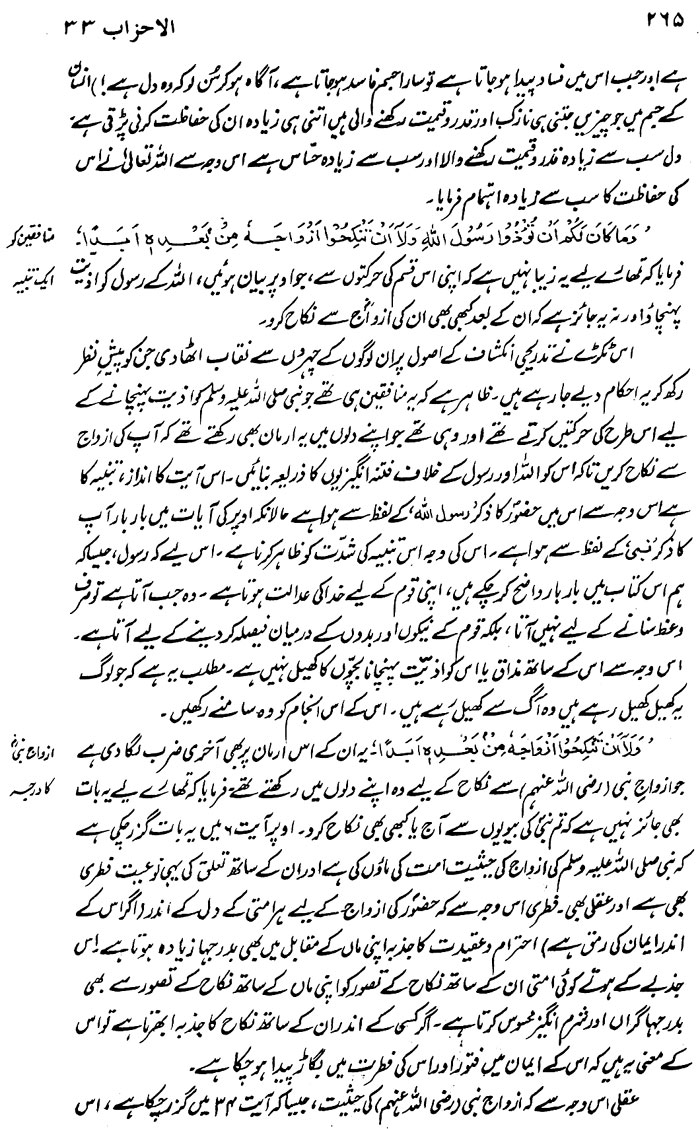 ۲۶۵
الاحزاب ۳۳
ہے اور جب اس میں فساد پیدا ہو جاتا ہے تو سارا جسم فاسد ہو جاتا ہے، آگاہ ہو کر سُن لو کہ وہ دل ہے!) انسان
کے جسم میں جو چیزیں جتنی ہی نازک اور قدر و قیمت رکھنے والی ہیں اتنی ہی زیادہ ان کی حفاظت کرنی پڑتی ہے۔
دل سب سے زیادہ قدر و قیمت رکھنے والا اور سب سے زیادہ حسّاس ہے اس وجہ سے اللہ تعالیٰ نے اس
کی حفاظت کا سب سے زیادہ اہتمام فرمایا۔
'وَمَا كَانَ لَكُمْ اَنْ تُؤْذُوْا رَسُوْلَ اللهِ وَلَآ اَنْ تَنْكِحُوْٓا اَزْوَاجَهٗ مِنْۢ بَعْدِهٖٓ اَبَدًا'۔
منافقین کو
ایک تنبیہ
فرمایا کہ تمھارے لیے یہ زیبا نہیں ہے کہ اپنی اس قسم کی حرکتوں سے، جو اوپر بیان ہوئیں، اللہ کے رسول کو اذیت
پہنچاؤ اور نہ یہ جائز ہے کہ ان کے بعد کبھی بھی ان کی ازواج سے نکاح کرو۔
اس ٹکڑے نے تدریجی انکشاف کے اصول پر ان لوگوں کے چہروں سے نقاب اٹھا دی جن کو پیشِ نظر
رکھ کر یہ احکام دیے جا رہے ہیں۔ ظاہر ہے کہ یہ منافقین ہی تھے جو نبی صلی اللہ علیہ وسلم کو اذیت پہنچانے کے
لیے اس طرح کی حرکتیں کرتے تھے اور وہی تھے جو اپنے دلوں میں یہ ارمان بھی رکھتے تھے کہ آپ کی ازواج
سے نکاح کریں تاکہ اس کو اللہ اور رسول کے خلاف فتنہ انگیزیوں کا ذریعہ بنائیں۔ اس آیت کا انداز، تنبیہ کا
ہے اس وجہ سے اس میں حضورؐ کا ذکر 'رسول اللہ' کے لفظ سے ہوا ہے حالانکہ اوپر کی آیات میں بار بار آپ
کا ذکر 'نبی' کے لفظ سے ہوا ہے۔ اس کی وجہ اس تنبیہ کی شدّت کو ظاہر کرنا ہے۔ اس لیے کہ رسول، جیسا کہ
ہم اس کتاب میں بار بار واضح کر چکے ہیں، اپنی قوم کے لیے خدا کی عدالت ہوتا ہے۔ وہ جب آتا ہے تو صرف
وعظ سنانے کے لیے نہیں آتا، بلکہ قوم کے نیکوں اور بدوں کے درمیان فیصلہ کر دینے کے لیے آتا ہے۔
اس وجہ سے اس کے ساتھ مذاق یا اس کو اذیّت پہنچانا بچّوں کا کھیل نہیں ہے۔ مطلب یہ ہے کہ جو لوگ
یہ کھیل کھیل رہے ہیں وہ آگ سے کھیل رہے ہیں۔ اس کے اس انجام کو وہ سامنے رکھیں۔
'وَلَآ اَنْ تَنْكِحُوْٓا اَزْوَاجَهٗ مِنْۢ بَعْدِهٖٓ اَبَدًا'۔ یہ ان کے اس ارمان پر بھی آخری ضرب لگا دی ہے
ازواجِ نبیؐ
کا درجہ
جو ازواجِ نبی (رضی اللہ عنہم) سے نکاح کے لیے وہ اپنے دلوں میں رکھتے تھے۔ فرمایا کہ تمھارے لیے یہ بات
بھی جائز نہیں ہے کہ تم نبیؐ کی بیویوں سے آج یا کبھی بھی نکاح کرو۔ اوپر آیت ۶ میں یہ بات گزر چکی ہے
کہ نبی صلی اللہ علیہ وسلم کی ازواج کی حیثیت امت کی ماؤں کی ہے اور ان کے ساتھ تعلق کی یہی نوعیت فطری
بھی ہے اور عقلی بھی۔ فطری اس وجہ سے کہ حضورؐ کی ازواج کے لیے ہر امتی کے دل کے اندر (اگر اس کے
اندر ایمان کی رمق ہے) احترام و عقیدت کا جذبہ اپنی ماں کے مقابل میں بھی بدرجہا زیادہ ہوتا ہے۔ اس
جذبے کے ہوتے کوئی امتی ان کے ساتھ نکاح کے تصور کو اپنی ماں کے ساتھ نکاح کے تصور سے بھی
بدرجہا گراں اور شرم انگیز محسوس کرتا ہے۔ اگر کسی کے اندر ان کے ساتھ نکاح کا جذبہ ابھرتا ہے تو اس
کے معنی یہ ہیں کہ اس کے ایمان میں فتور اور اس کی فطرت میں بگاڑ پیدا ہو چکا ہے۔
عقلی اس وجہ سے کہ ازواج نبی (رضی اللہ عنہم) کی حیثیت، جیسا کہ آیت ۳۴ میں گزر چکا ہے، اس